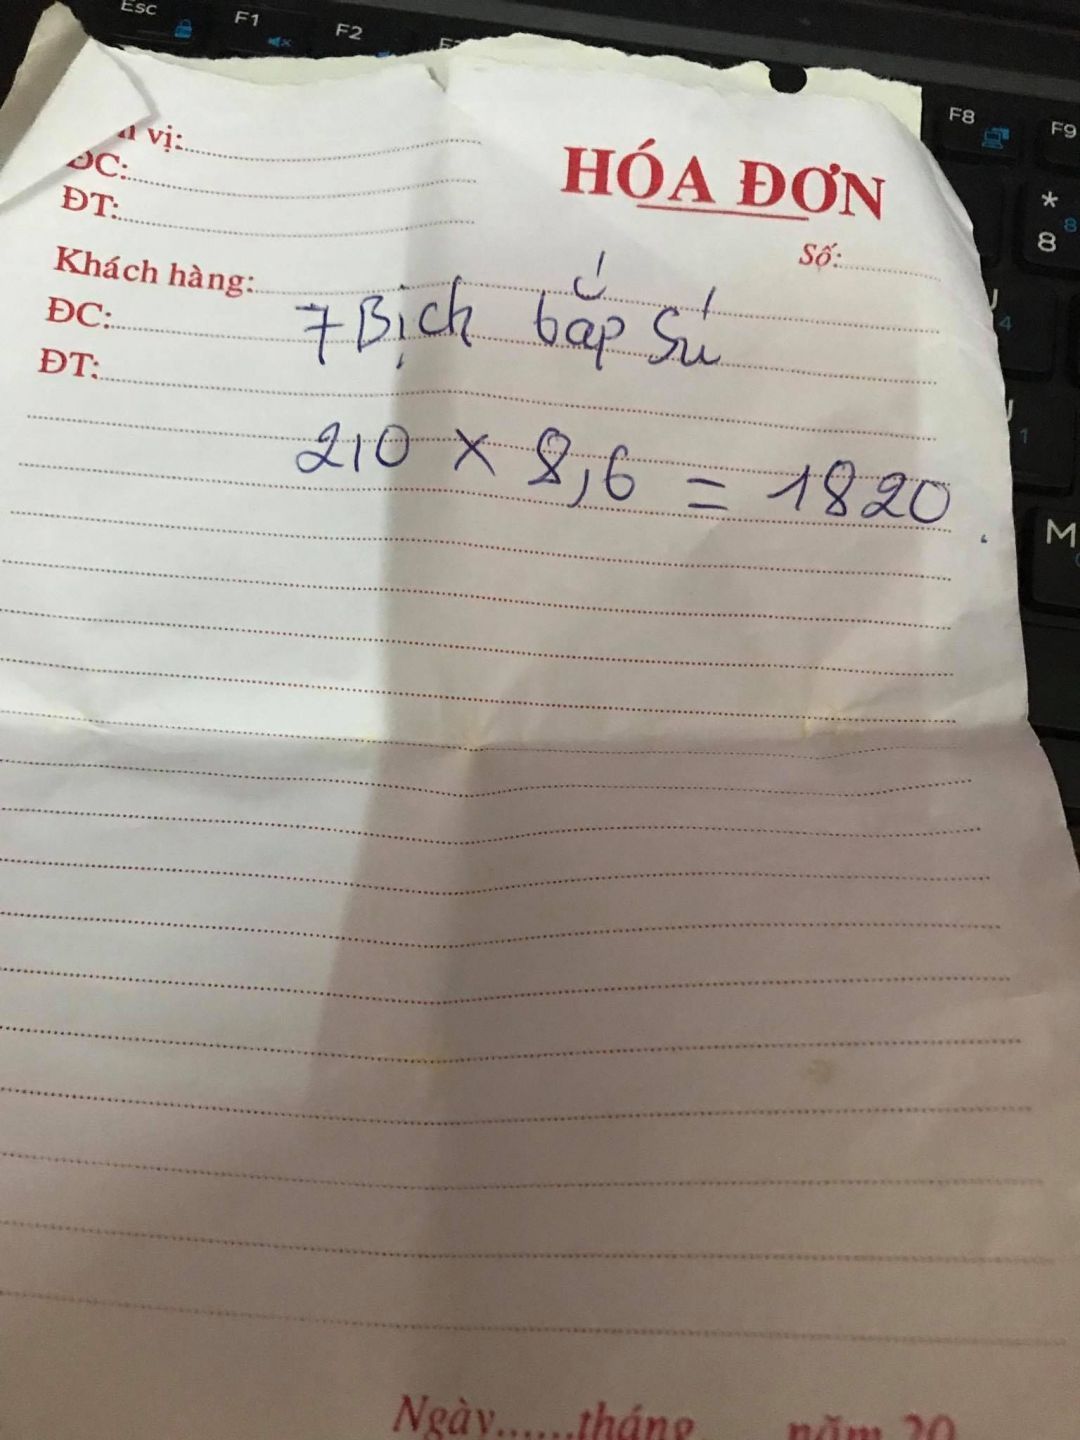 Esc F1 F2
F8 F9
vị:
HÓA ĐƠN
ĐC:
ĐT:
Số:
Khách hàng:
ĐC:
7 Bịch bắp Sú
ĐT:
2,0 x 8,6 = 1820
* 8
8
4
1
M
Ngày......tháng năm 20